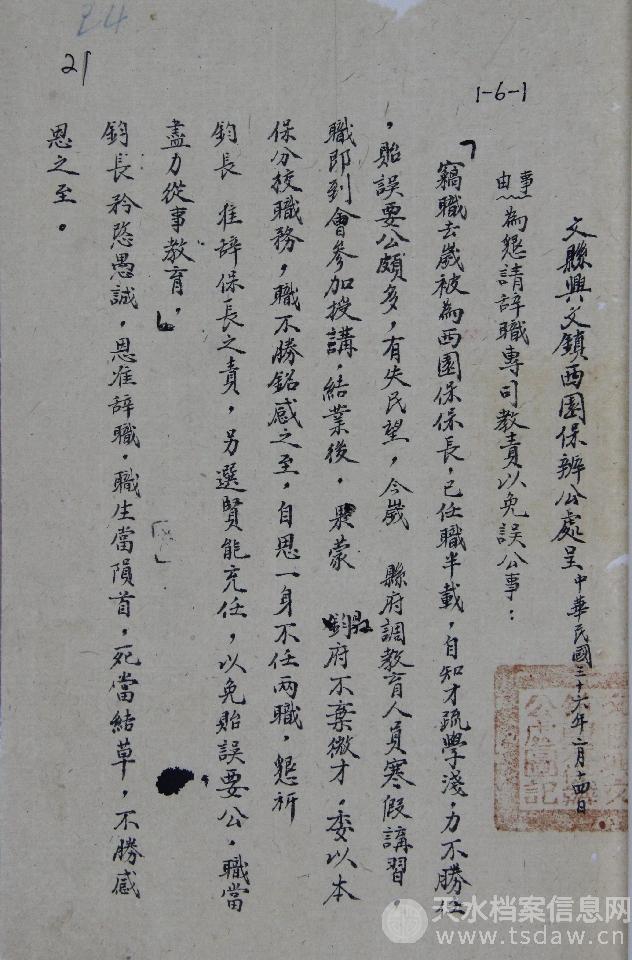 24
21
1-6-1
文縣興文鎮西園保辦公處呈 中華民國三十六年二月十四日
事由 為懇請辭職專司教責以免誤公事：
「竊職去歲被為西園保保長，已任職半載，自知才疏學淺，力不勝任
，貽誤要公頗多，有失民望，今歲 縣府調教育人員寒假講習，
職即到會參加授講，結業後， 蒙 鈞府不棄微才，委以本
保分校職務，職不勝銘感之至，自思一身不任兩職，懇祈
鈞長 准辭保長之責，另選賢能充任，以免貽誤要公，職當
盡力從事教育，」
鈞長矜愍愚誠，恩准辭職，職生當隕首，死當結草，不勝感
恩之至。
天水档案信息网
www.tsdaw.cn